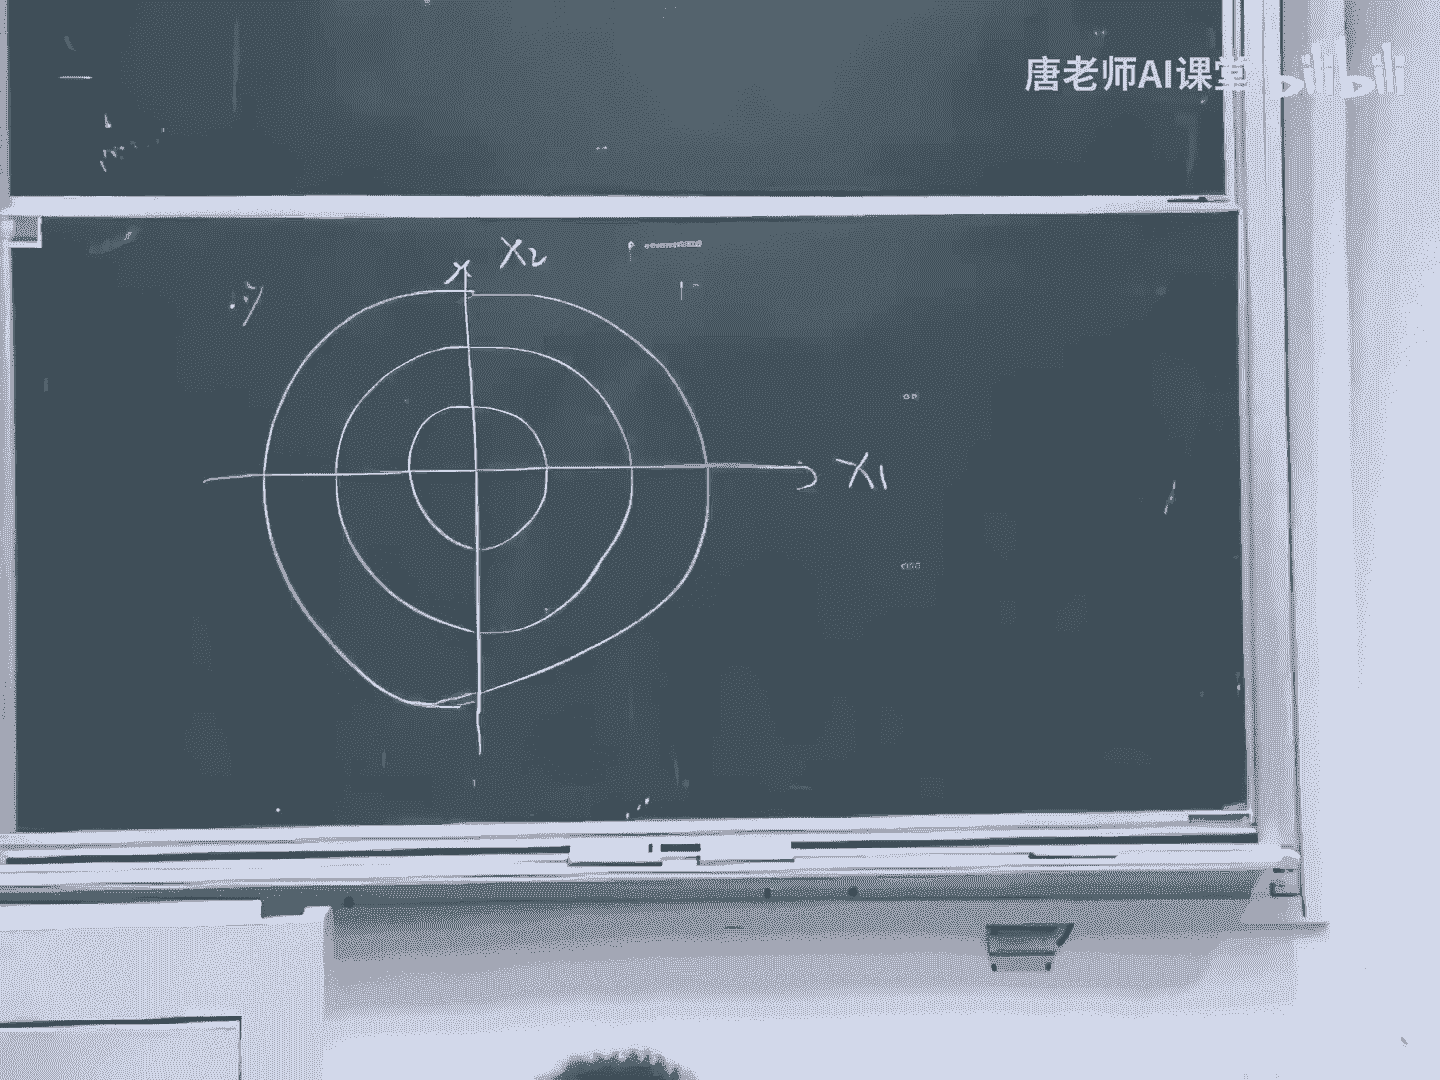 唐老师AI课堂 bilibili
X2
X1